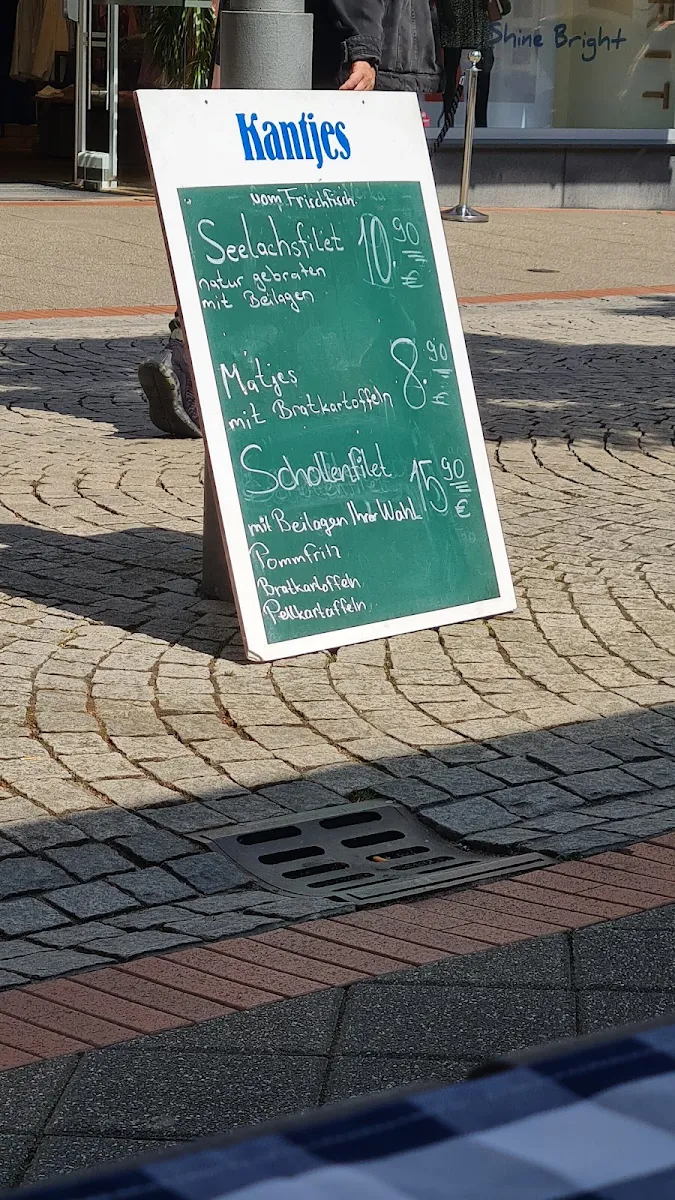 Shine Bright
Kantjes
vom Frischfisch
Seelachsfilet 10.90 €
natur gebraten
mit Beilagen
Matjes 8.90
mit Bratkartoffeln
Schollenfilet 15 90 €
mit Beilagen Ihrer Wahl
Pommfritz
Bratkartoffeln
Pellkartoffeln